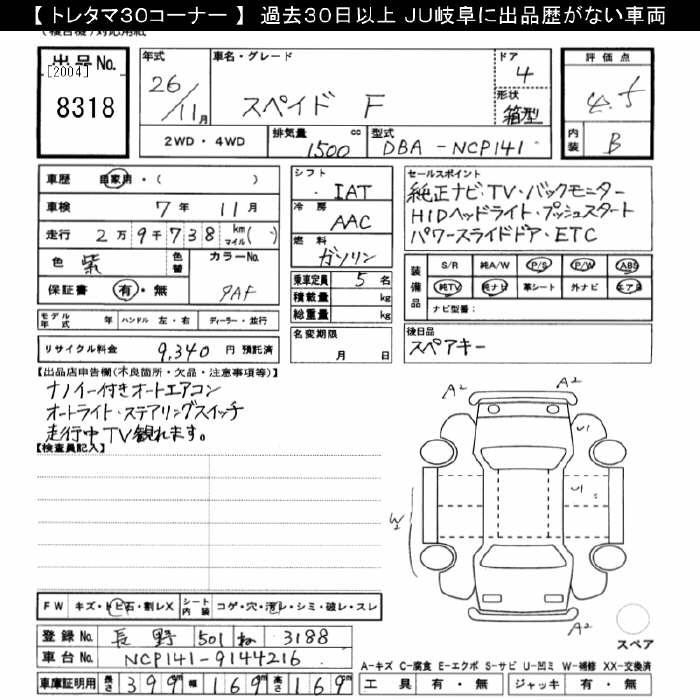 【トレタマ30コーナー】 過去30日以上 JU岐阜に出品歴がない車両
出品No.
[2004]
8318
年式
26/11月
車名・グレード
スペイド F
ドア
4
形状
箱型
評価点
4.5
内装
B
2WD・4WD
排気量
1500 cc
型式
DBA-NCP141
車歴 自家用・( )
車検 7年 11月
走行 2万9千738 km マイル( )
色 紫 色替
カラーNo.
9AF
保証書 有・無
モデル年式 年 ハンドル 左・右 ディーラー・並行
リサイクル料金 9,340 円 預託済
シフト
IAT
冷房
AAC
燃料
ガソリン
乗車定員 5 名
積載量 kg
総重量 kg
名変期限
月 日
セールスポイント
純正ナビ・TV・バックモニター
HIDヘッドライト・プッシュスタート
パワースライドドア・ETC
装備品
S/R 純A/W P/S P/W ABS
純TV 純ナビ 革シート 外ナビ エアB
ナビ型番:
後日品
スペアキー
【出品店申告欄(不良箇所・欠品・注意事項等)】
ナノイー付きオートエアコン
オートライト・ステアリングスイッチ
走行中TV観れます。
【検査員記入】
A2
A2
U1
U1
W2
A2
スペア
FW キズ・トビ石・割レX シート内装 コゲ・穴・汚レ・シミ・破レ・スレ
登録No. 長野 501 ね 3188
車台No. NCP141-9144216
車庫証明用 長さ 399 幅 169 高さ 169
A-キズ C-腐食 E-エクボ S-サビ U-凹ミ W-補修 XX-交換済
工具 有・無 ジャッキ 有・無